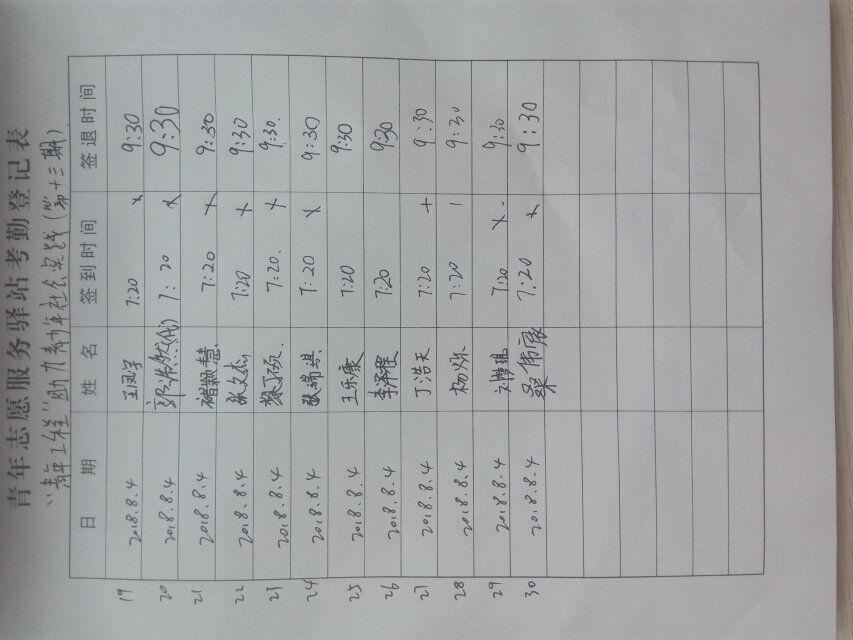 青年志愿服务驿站考勤登记表
“青年工程”助力青少年社会实践(第十三期)
日 期 姓 名 签到时间 签退时间
19 2018.8.4 王凤宇 7:20 x 9:30
20 2018.8.4 郭浩然(代) 7:20 x 9:30
21 2018.8.4 褚颖慧 7:20 x 9:30
22 2018.8.4 张文杰 7:20 x 9:30
23 2018.8.4 黎丁硕 7:20 x 9:30
24 2018.8.4 张瑞琪 7:20 x 9:30
25 2018.8.4 王乐康 7:20 9:30
26 2018.8.4 李泽程 7:20 9:30
27 2018.8.4 丁浩天 7:20 + 9:30
28 2018.8.4 杨烁 7:20 9:30
29 2018.8.4 7:20 x 9:30
30 2018.8.4 桑伟宸 7:20 x 9:30